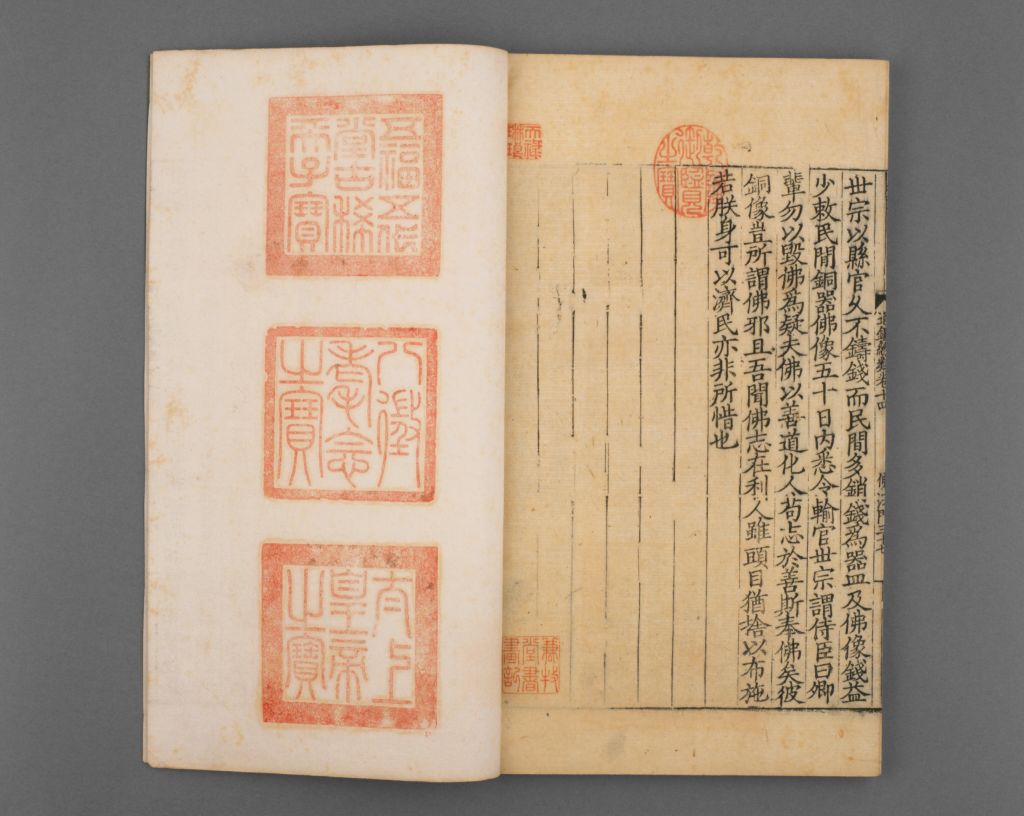 通鑑總類卷十四
世宗以縣官久不鑄錢而民間多銷錢爲器皿及佛像錢益
少敕民間銅器佛像五十日內悉令輸官世宗謂侍臣曰卿
輩勿以毀佛爲疑夫佛以善道化人苟志於善斯奉佛矣彼
銅像豈所謂佛邪且吾聞佛志在利人雖頭目猶捨以布施
若朕身可以濟民亦非所惜也
乾隆御覽之寶
天祿琳琅
兼牧堂書畫記
五福五代堂古稀天子寶
八徵耄念之寶
太上皇帝之寶